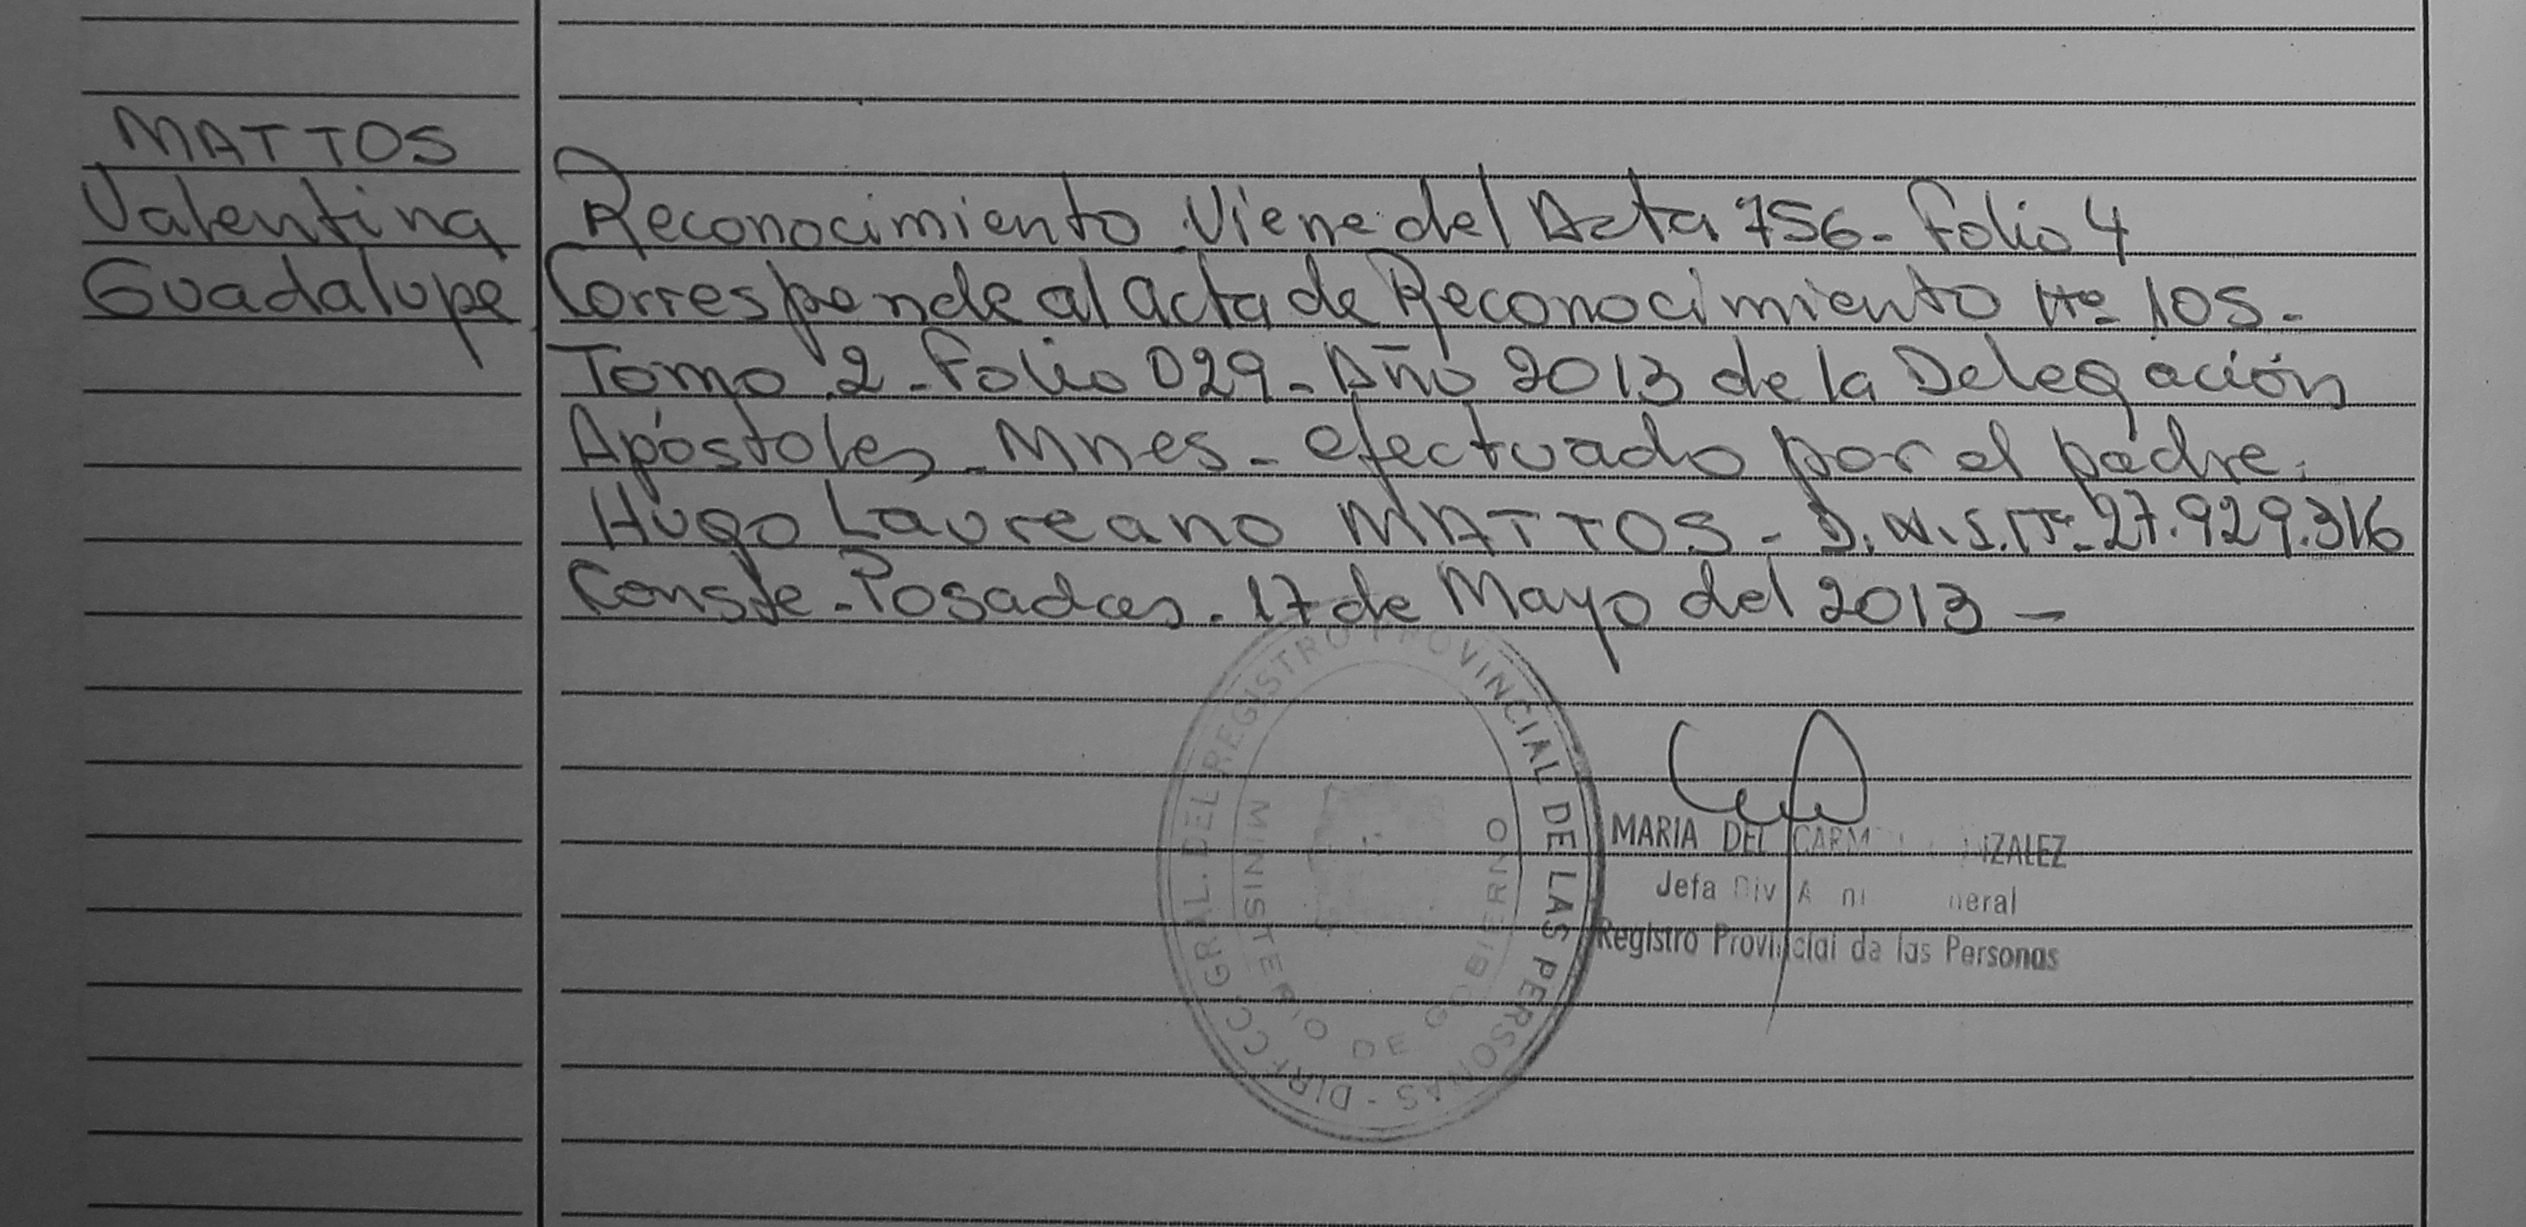 MATTOS
Valentina
Guadalupe
Reconocimiento. Viene del Acta 756. Folio 4
Corresponde al acta de Reconocimiento Nº 105.
Tomo 2. Folio 029. Año 2013 de la Delegación
Apóstoles. Mnes. efectuado por el padre.
Hugo Laureano MATTOS. D.N.I. Nº 27.929.316
Conste. Posadas. 17 de Mayo del 2013 -
DIRECC. GRAL. DEL REGISTRO PROVINCIAL DE LAS PERSONAS -
MINISTERIO DE GOBIERNO
MARIA DEL
Jefa Div
Registro Provincial de las Personas